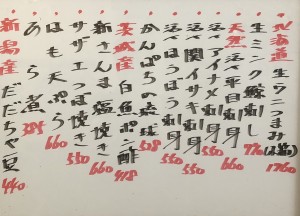 北海道 生ウニつまみ 1760
生ミンク鯨刺し 770
天然 活〆平目刺身 660
活〆アイナメ刺身 550
活〆関イサキ刺身
活〆ほうぼう刺身 550
かんぱちの 508
茨城産 白魚ポン酢 418
新さんま塩焼き 660
サザエつぼ焼き 550
はも天ぷら 660
あら煮 385
新潟産 だだちゃ豆 440